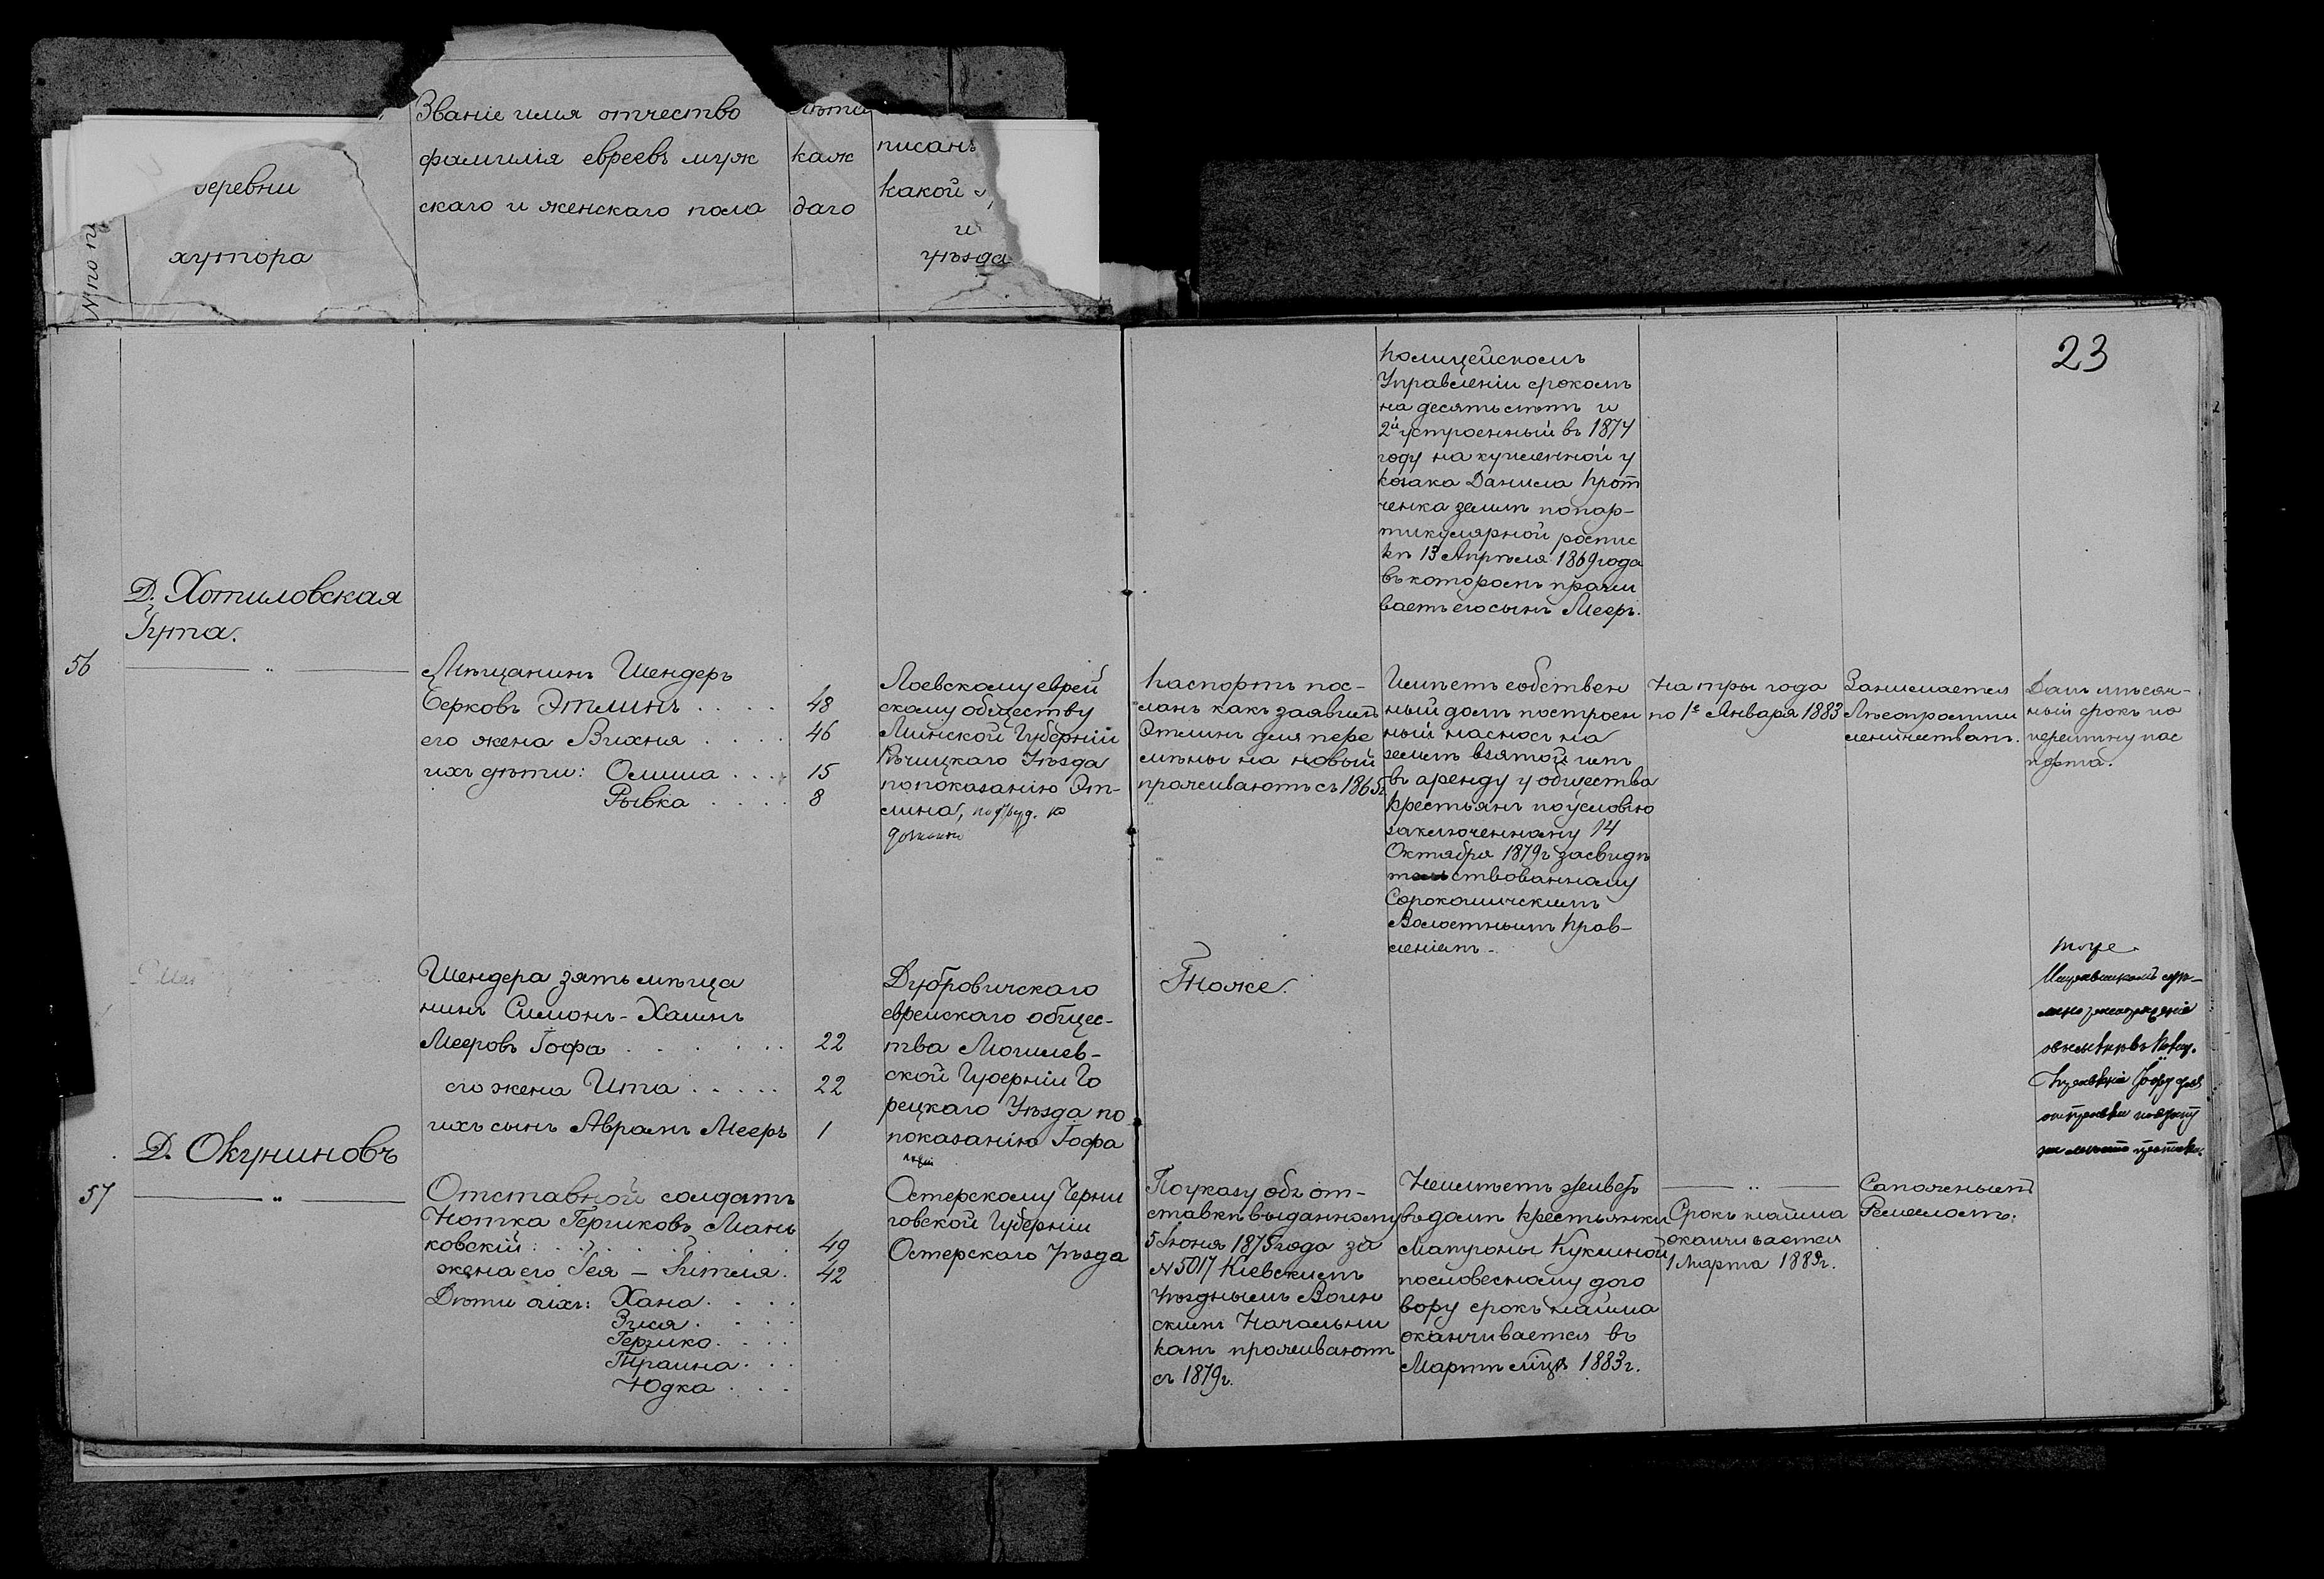 деревни
хутора
Званіе имя отчество
фамилія евреевъ муж
скаго и женскаго пола
Лѣта
каж
даго
писанъ
какой
и
уѣзда
23
Полицейскомъ
Управленіи срокомъ
на десять лѣтъ и
2й устроенный въ 1874
году на купленной у
козака Данила Прот
ченка землѣ по пар-
тикулярной роспис
кѣ 13 Апрѣля 1869 года
въ которомъ прожи
ваетъ его сынъ Мееръ.
Д. Хотиловская
Гута.
56
Мѣщанинъ Шендеръ
Берковъ Этлинъ 48
его жена Вихня 46
ихъ дѣти: Олиша 15
Рывка 8
Лоевскому еврей
скому обществу
Минской Губерніи
Рѣчицкаго Уѣзда
по показанію Эт-
лина,
Паспортъ пос-
ланъ какъ заявилъ
Этлинъ для пере
мѣны на новый
проживаютъ съ 1865г.
Имѣетъ собствен
ный домъ построен
ный насносъ на
землѣ взятой имъ
въ аренду у общества
крестьянъ по условію
заключенному 14
Октября 1879г засвидѣ
тельствованному
Сорокошичскимъ
Волостнымъ Прав-
леніемъ.
На три года
по 1е Января 1883
Занимается
Лѣсопромыш
ленничествомъ.
Данъ мѣсяч-
ный срокъ по
перемѣну пас
порта.
Шендера зять мѣща
нинъ Симонъ-Хаимъ
Мееровъ Гофа 22
его жена Ита 22
ихъ сынъ Аврамъ Мееръ 1
Дубровичскаго
еврейскаго общес-
тва Могилев-
ской Губерніи Го
рецкаго Уѣзда по
показанію Гофа
Тоже.
тоже
Д. Окуниновъ
57
Отставной солдатъ
Нотка Гершковъ Мань
ковскій 49
жена его Гея - Гитля 42
Дѣти ихъ: Хана
Зися
Гершко
Траина
Юдка
Остерскому Черни
говской Губерніи
Остерскаго Уѣзда
По указу объ от-
ставкѣ выданному
5 Іюня 1875 года за
№ 5017 Кіевскимъ
Уѣзднымъ Воин
скимъ Начальни
комъ проживаютъ
съ 1879г.
Неимѣетъ живетъ
въ домѣ крестьянки
Матроны Куклиной
по словесному дого
вору срокъ найма
оканчивается въ
Мартѣ мцѣ 1883г.
Срокъ найма
оканчивается
1 Марта 1883г.
Сапожнымъ
Ремесломъ.